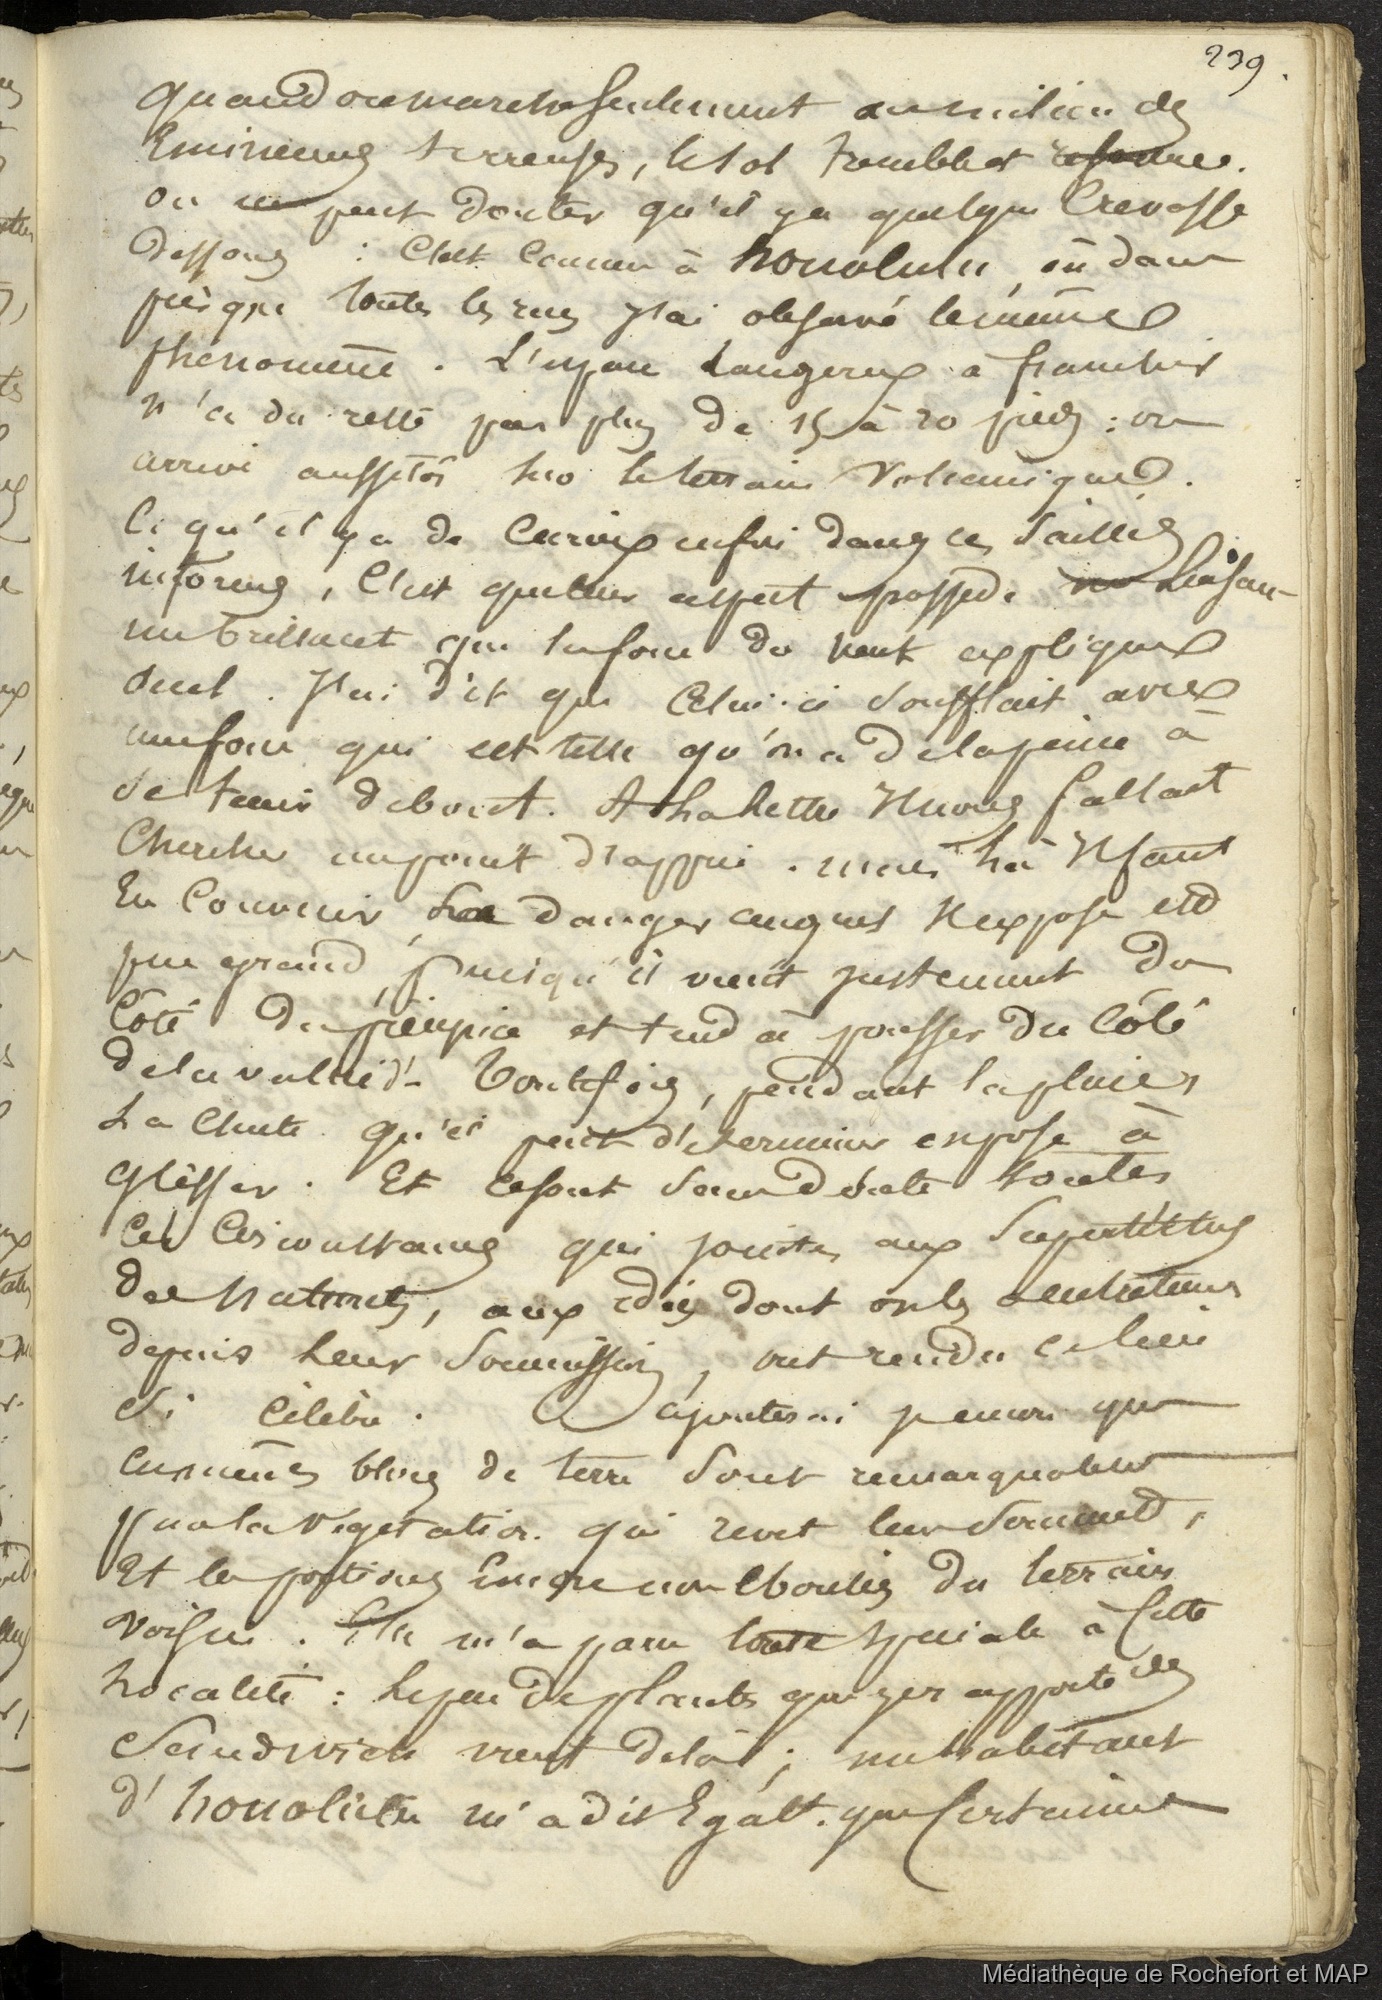 239.
quand on marche seulement au milieu des
Eminences terreuses, le sol tremble et résonne.
on ne peut douter qu'il y a quelque Crevasse
dessous : C'est comme à honolulu, où dans
presque toutes les rues J'ai observé le même
phénomène. L'espace dangereux à franchir
n'a du reste pas plus de 15 à 20 pieds : on
arrive aussitôt sur le terrain Volcanique.
Ce qu'il y a de Curieux enfin dans ces Saillies
informes, C'est que leur aspect possède
que la force du vent explique
seul. J'ai dit que Celui-ci Soufflait avec
une force qui est telle qu'on a de la peine à
se tenir debout. Il fallait
Chercher un point d'appui. mais là Il faut
En Convenir, Le danger auquel Il expose est
peu grand, puisqu'il vient justement du
Côté du précipice et tend à pousser du Côté
de la vallée. Toutefois, pendant la pluie,
La Chute qu'il peut déterminer expose à
glisser. Et ce sont sans doute toutes
Ces Circonstances qui jointes aux Superstitions
des Naturels, aux idées dont on les a entretenus
depuis leur Soumission, ont rendu ce lieu
Si Célèbre. ajouterai je encore que
ces mêmes blocs de terre Sont remarquables
par la Végétation qui revet leur Sommet,
Et les portions Encore non Eboulées du terrain
voisin. Elle m'a paru toute Spéciale à Cette
Localité : le peu de plantes que j'ai apporté des
Sandwich vient de là ; un habitant
d'honolulu m'a dit Egalt. que Certaines
Médiathèque de Rochefort et MAP